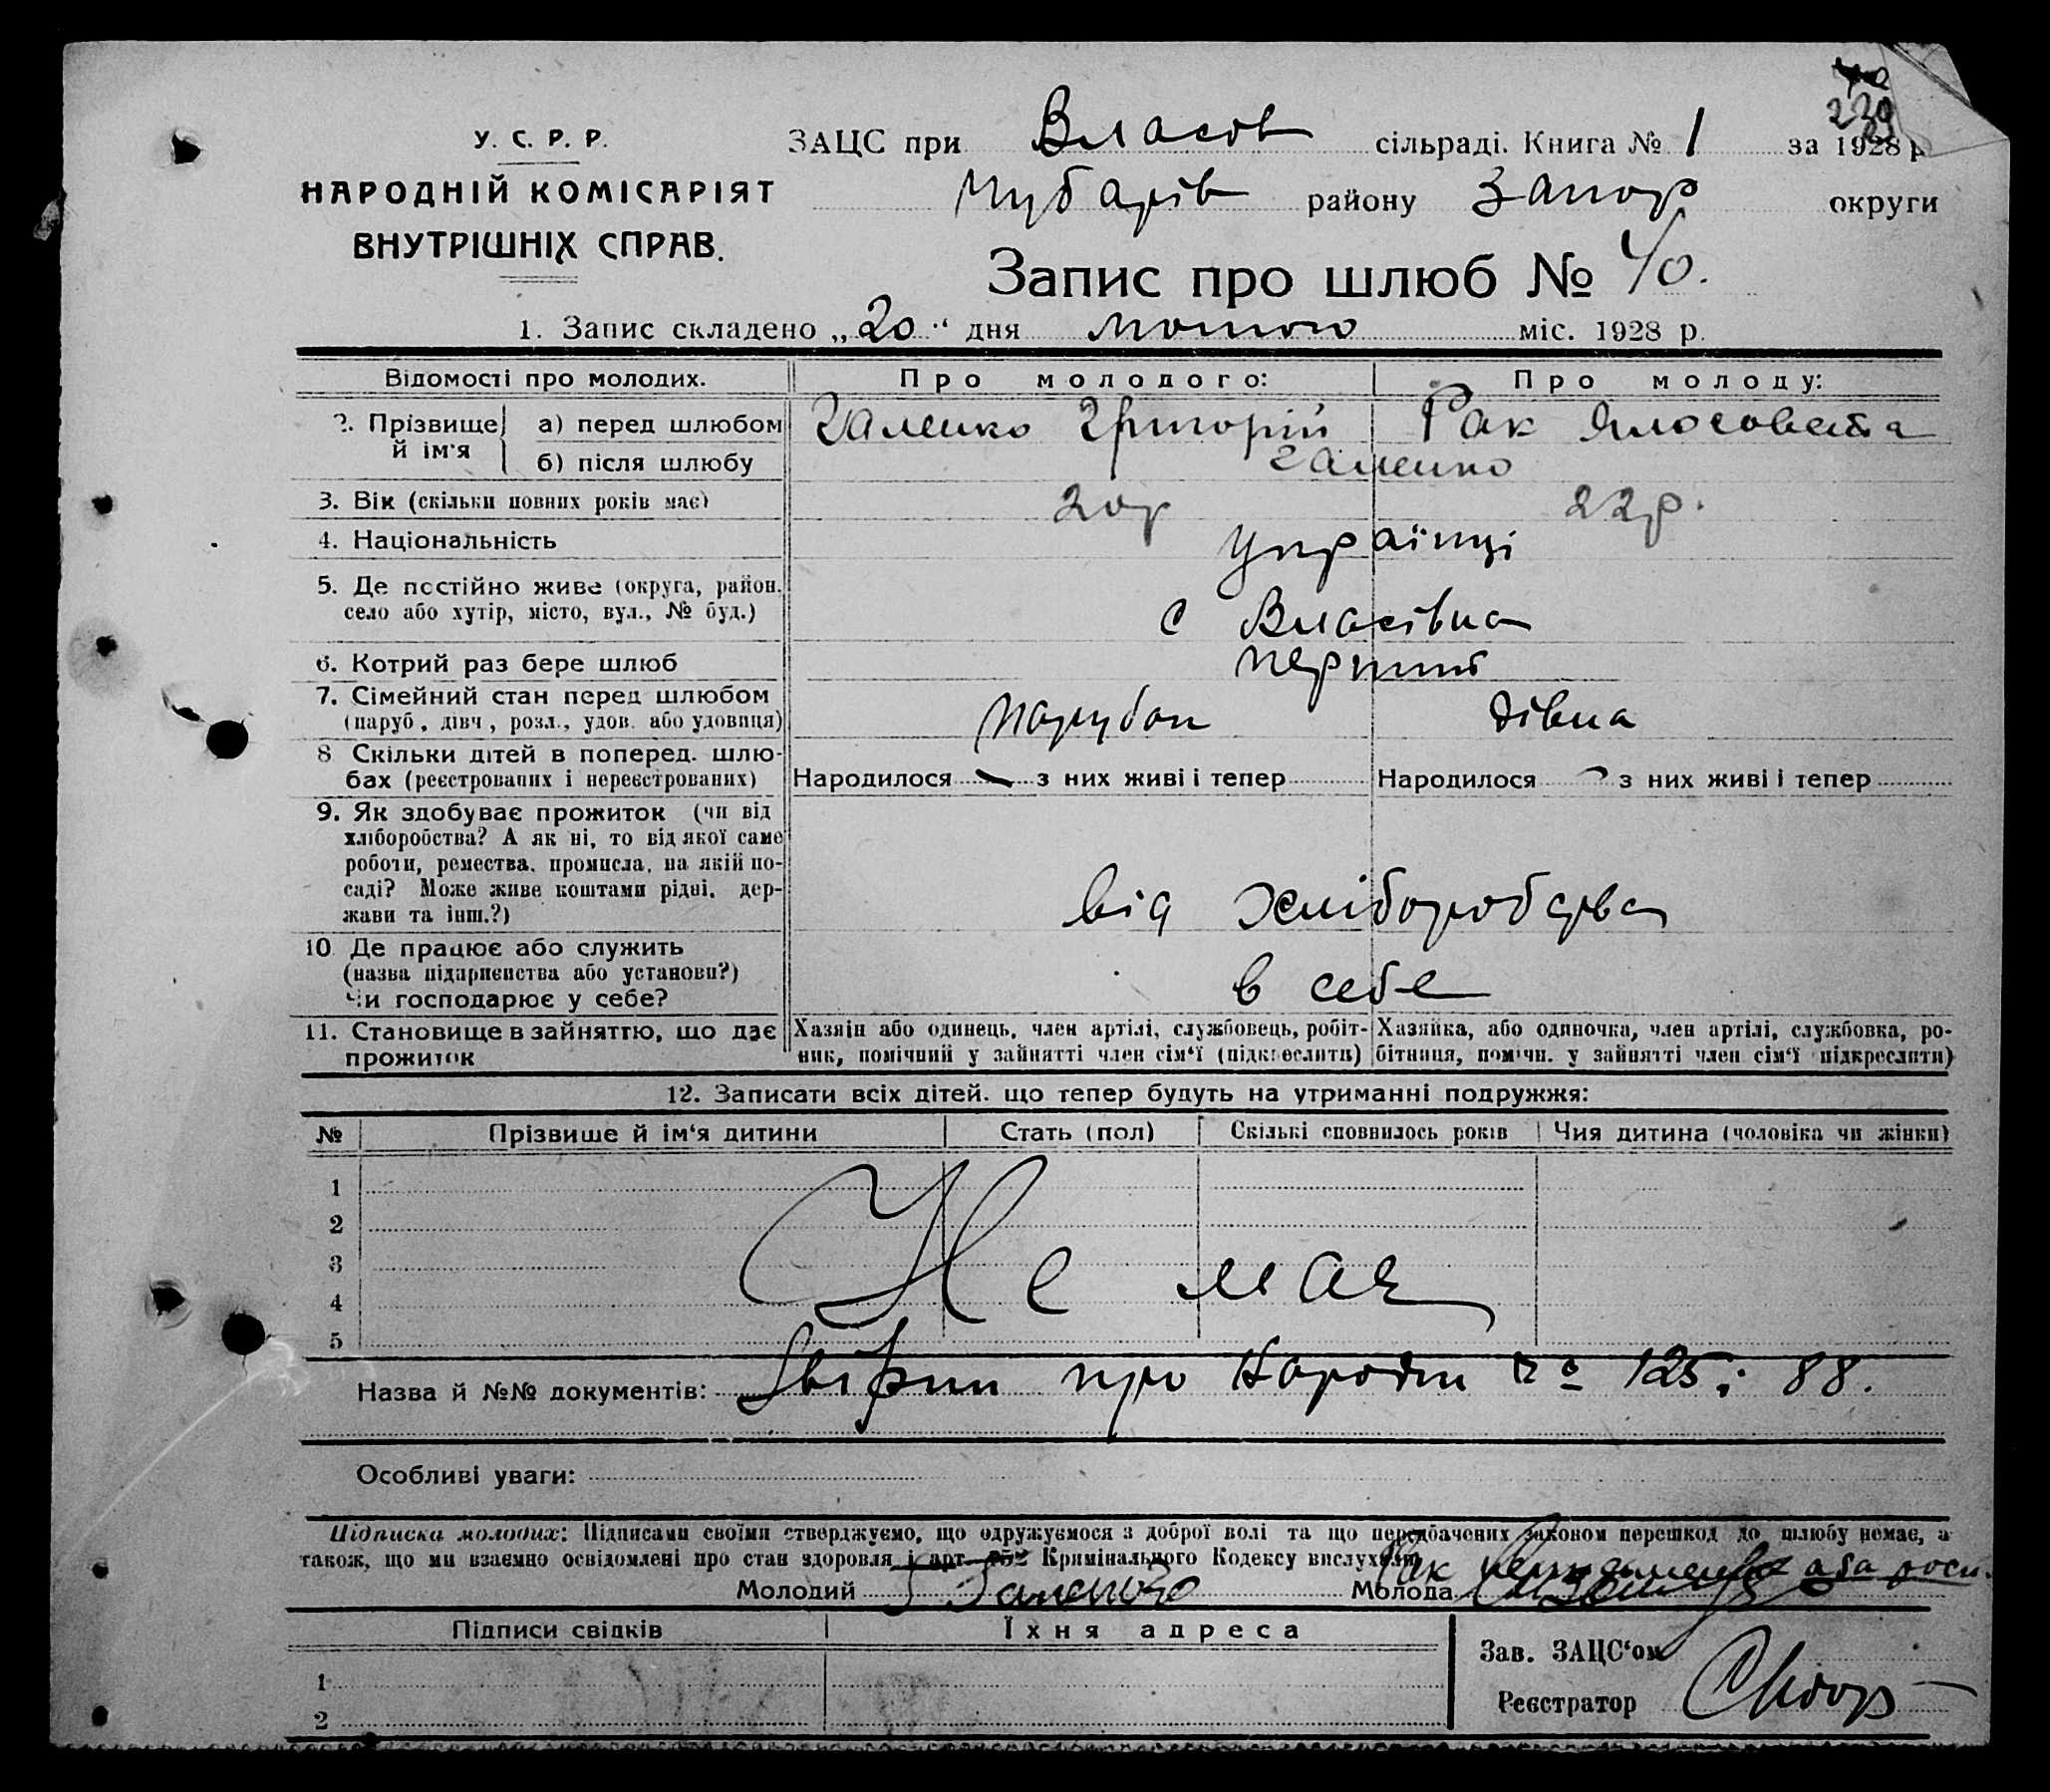 220
У. С. Р. Р.
НАРОДНІЙ КОМІСАРІЯТ
ВНУТРІШНІХ СПРАВ.
ЗАЦС при Власов сільраді. Книга № 1 за 1928 р
Чубарів району Запор округи
Запис про шлюб № 40.
1. Запис складено „20“ дня лютого міс. 1928 р.
Відомості про молодих. Про молодого: Про молоду:
2. Прізвище й ім‘я а) перед шлюбом Галенко Григорій Рак Ялосовета
б) після шлюбу Галенко
3. Вік (скільки повних років має) 20р 22р.
4. Національність Українці
5. Де постійно живе (округа, район,
село або хутір, місто, вул., № буд.) с Власівка
6. Котрий раз бере шлюб перший
7. Сімейний стан перед шлюбом
(паруб, дівч, розл., удов. або удовиця) Парубок дівка
8 Скільки дітей в поперед. шлю-
бах (реєстрованих і нереєстрованих) Народилося — з них живі і тепер Народилося з них живі і тепер
9. Як здобуває прожиток (чи від
хліборобства? А як ні, то від якої саме
роботи, ремества, промисла, на якій по-
саді? Може живе коштами рідні, дер-
жави та інш.?) від хліборобства
10 Де працює або служить
(назва підприємства або установи?)
Чи господарює у себе? в себе
11. Становище в зайняттю, що дає
прожиток
Хазяїн або одинець, член артілі, службовець, робіт-
ник, помічний у зайнятті член сім‘ї (підкреслити)
Хазяйка, або одиночка, член артілі, службовка, ро-
бітниця, помічн. у зайнятті член сім‘ї підкреслити)
12. Записати всіх дітей, що тепер будуть на утриманні подружжя:
№ Прізвище й ім‘я дитини Стать (пол) Скількі сповнилось років Чия дитина (чоловіка чи жінки)
1
2
3
4
5
Не має
Назва й №№ документів: про Народж № 125 і 88.
Особливі уваги:
Підписка молодих: Підписами своїми стверджуємо, що одружуємося з доброї волі та що передбачених законом перешкод до шлюбу немає, а
також, що ми взаємно освідомлені про стан здоровля і арт. Кримінального Кодексу вислухали.
Молодий Галенко Молода Рак
Підписи свідків Їхня адреса
1
2
Зав. ЗАЦС‘ом
Реєстратор